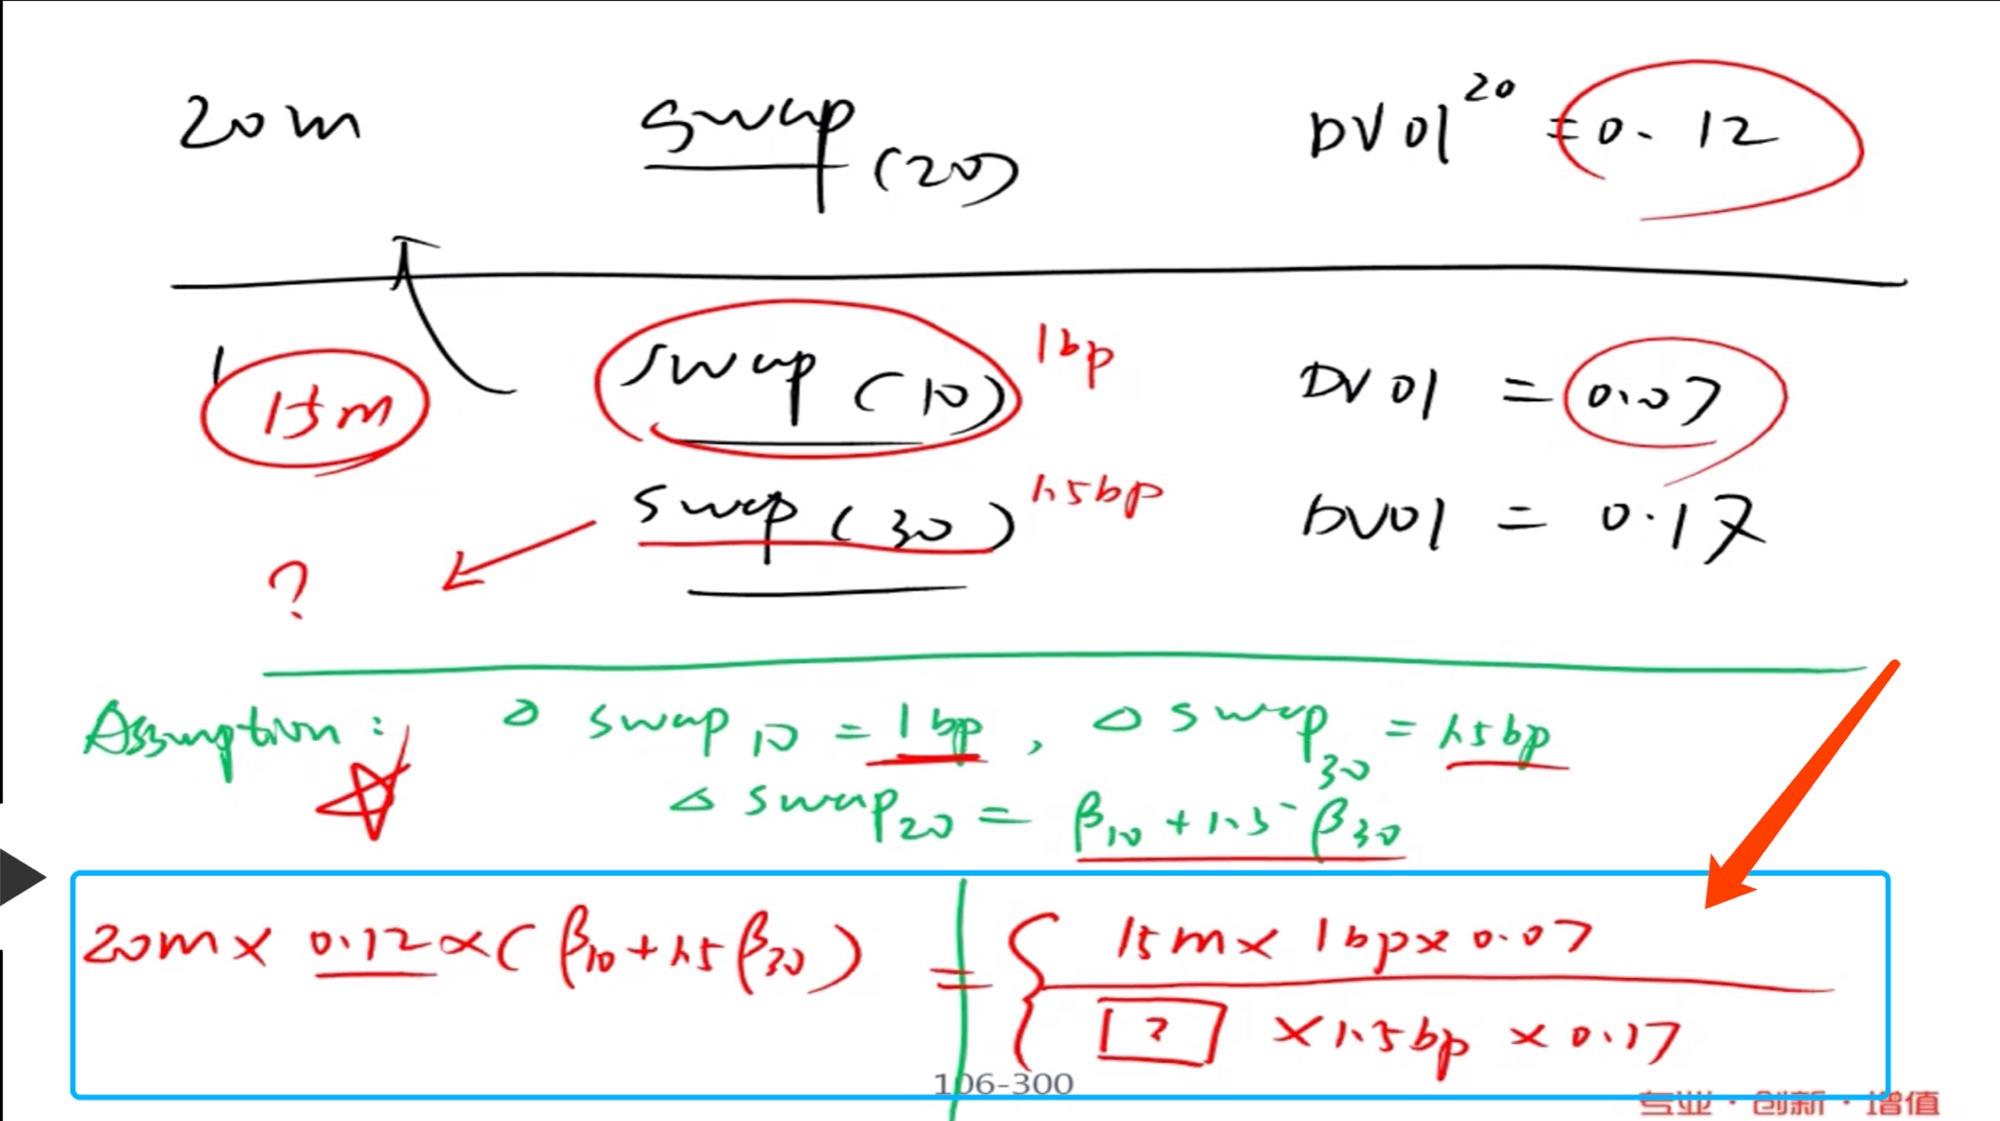 20m swap (20) DV01²⁰ = 0.12
15m swap (10) 1bp DV01 = 0.07
? swap (30) 1.5bp DV01 = 0.17
Assumption: Δ swap₁₀ = 1bp, Δ swap₃₀ = 1.5bp
Δ swap₂₀ = β₁₀ + 1.5 β₃₀
20m × 0.12 × (β₁₀ + 1.5 β₃₀) = { 15m × 1bp × 0.07
? × 1.5bp × 0.17
106-300
专业·创新·增值